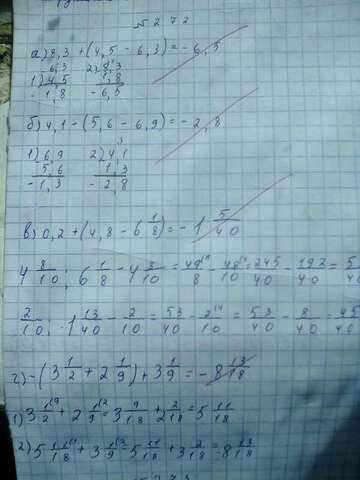 № 272
а) 8,3 + (4,5 - 6,3) = - 6,5
6,3 2) 8,3
1) 4,5 1,8
- 1,8 - 6,5
б) 4,1 - (5,6 - 6,9) = - 2,8
1) 6,9 2) 4,1
5,6 1,3
- 1,3 - 2,8
в) 0,2 + (4,8 - 6 1/8) = - 1 5/40
4 8/10; 6 1/8 - 4 8/10 = 49/8 - 48/10 = 245/40 - 192/40 = 5
2/10; 1 13/40 - 2/10 = 53/40 - 2/10 = 53/40 - 8/40 = 45
г) - (3 1/2 + 2 1/9) + 3 1/9 = - 8 13/18
1) 3 1/2 + 2 1/9 = 3 9/18 + 2 2/18 = 5 11/18
2) 5 11/18 + 3 1/9 = 5 11/18 + 3 2/18 = - 8 13/18